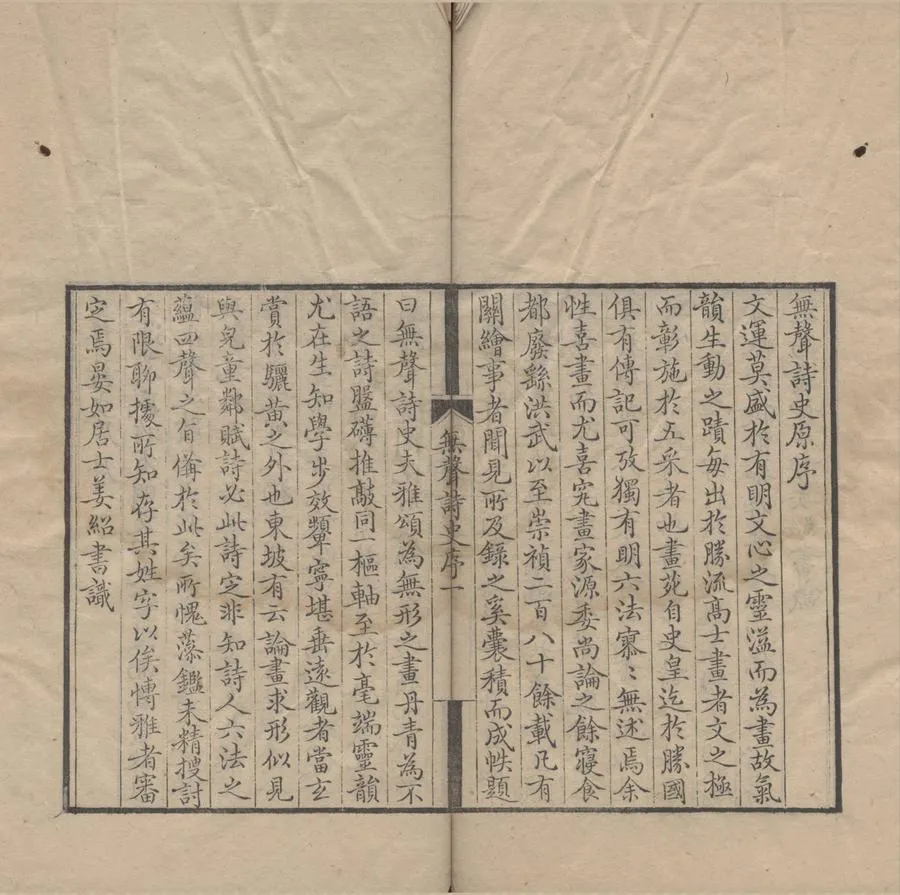 無聲詩史原序
文運莫盛於有明文心之靈溢而為畫故氣
韻生動之蹟每出於勝流高士畫者文之極
而彰施於五采者也畫苑自史皇迄於勝國
俱有傳記可攷獨有明六法寥〻無述焉余
性喜畫而尤喜究畫家源委尚論之餘寢食
都廢繇洪武以至崇禎二百八十餘載凡有
關繪事者聞見所及錄之奚囊積而成帙題
無聲詩史序 一
曰無聲詩史夫雅頌為無形之畫丹青為不
語之詩盤礴推敲同一樞軸至於毫端靈韻
尤在生知學步效顰寧堪垂遠觀者當玄
賞於驪黃之外也東坡有云論畫求形似見
與兒童鄰賦詩必此詩定非知詩人六法之
蘊四聲之旨備於此矣所愧藻鑑未精搜討
有限聊據所知存其姓字以俟博雅者審
定焉晏如居士姜紹書識